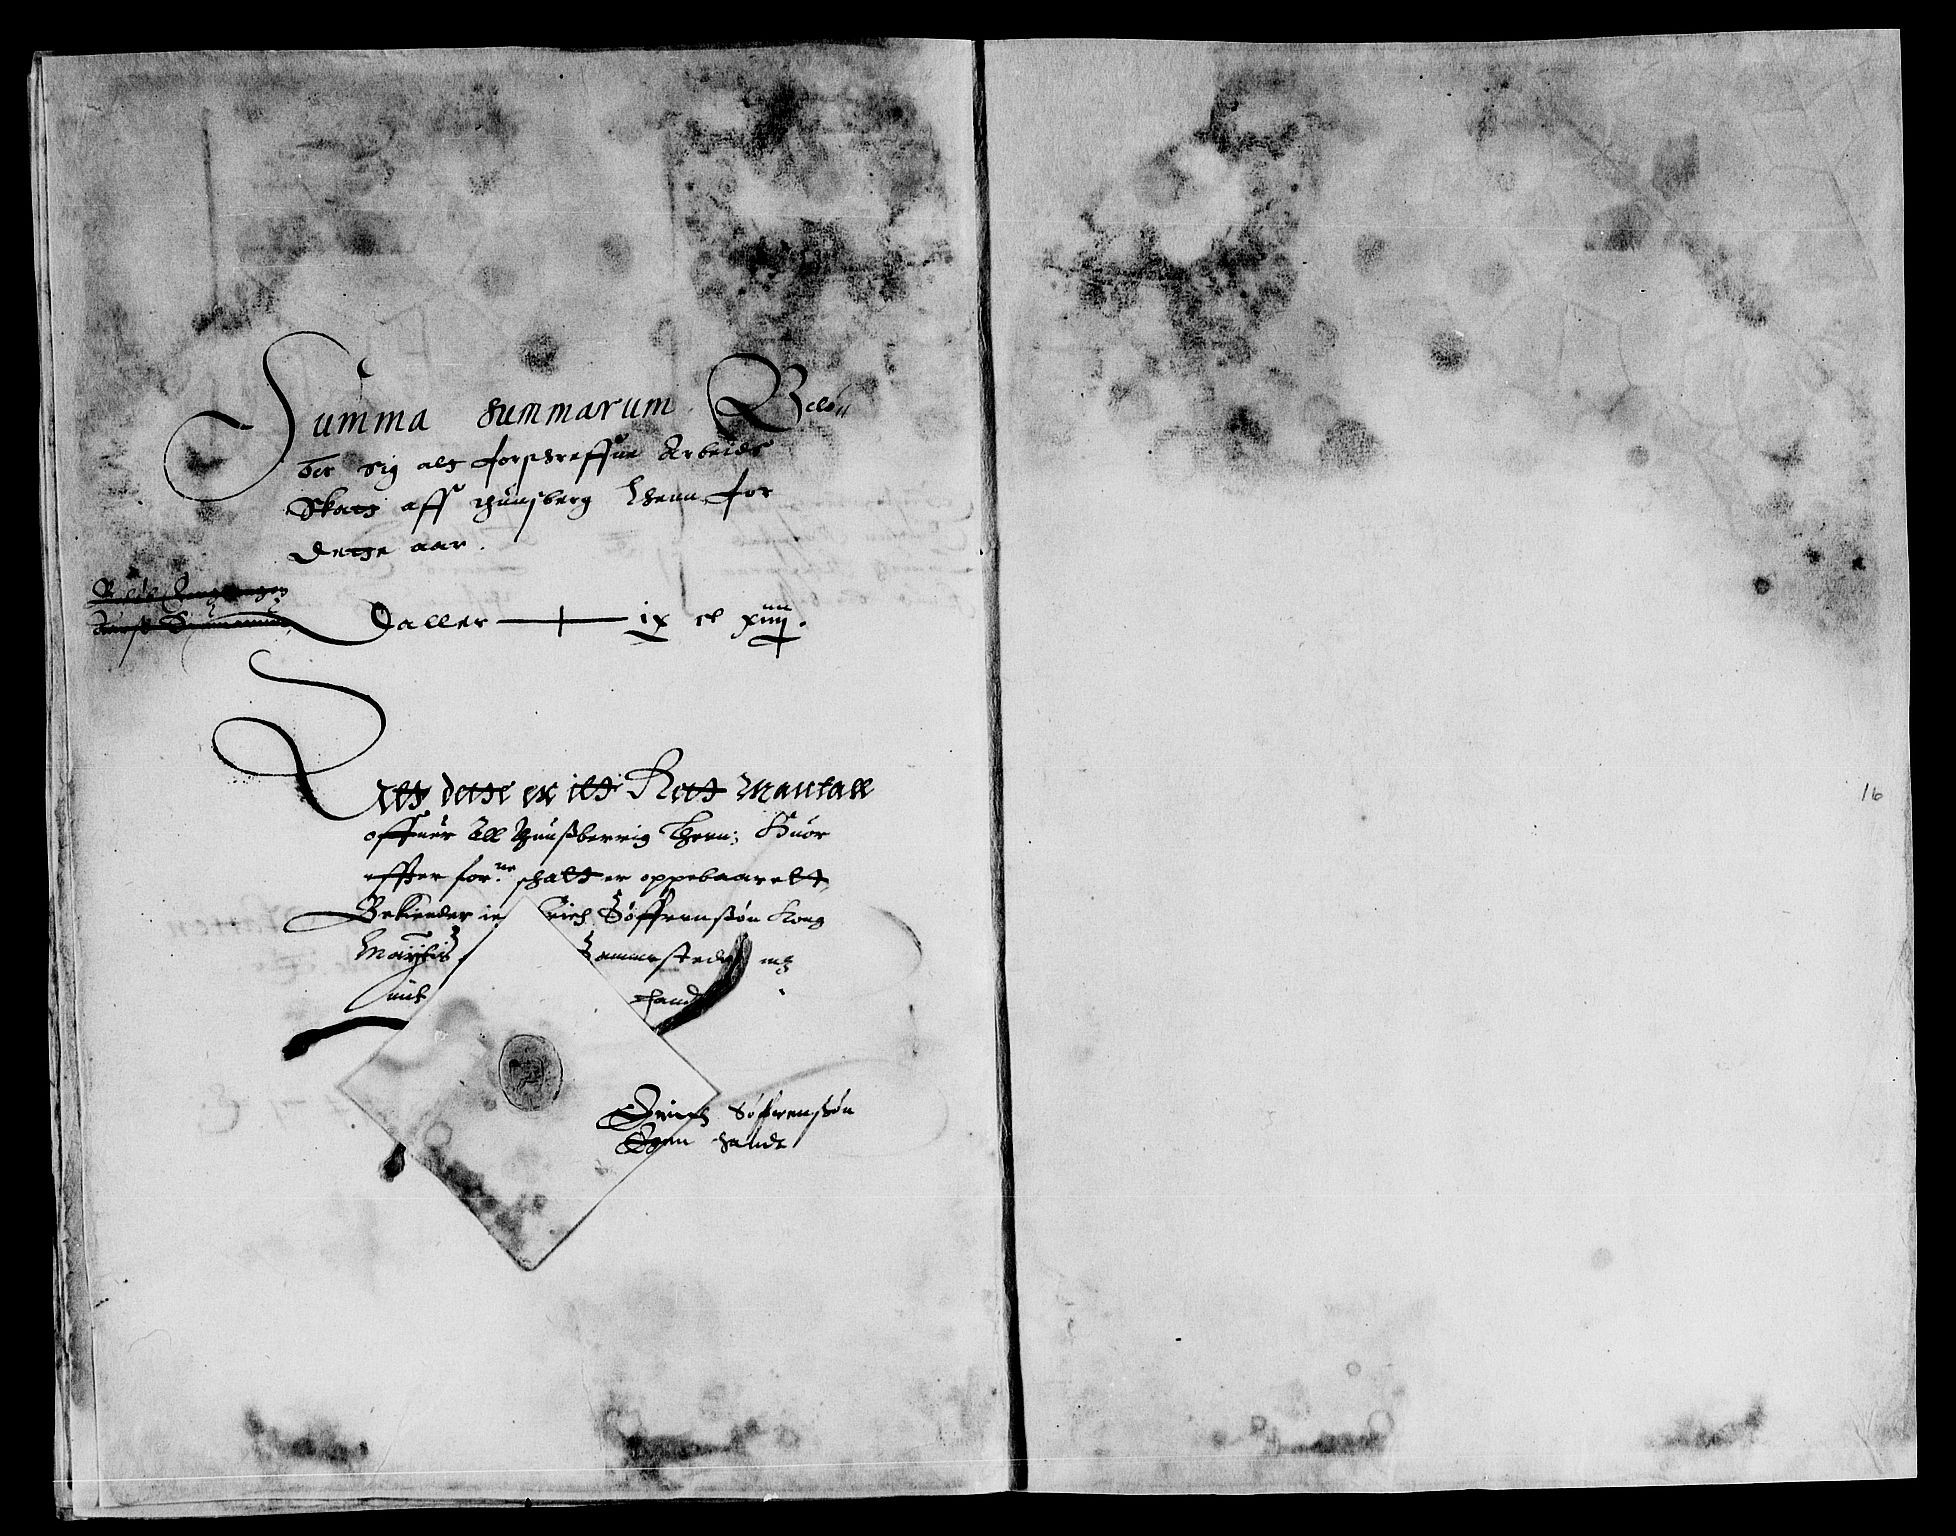 Summa summarum Beløb
der sig alt forschreffne Arbeids
Skatt aff Thunsberg Lhenn for
dette aar.
Daller — ix c xiiij.
Att dette er itt Rett Mantall
offuer all Thunsberrig Lhenn; Huor
effter for:ne schatt er oppebaarett,
Bekiender ie Erich Søffrenssøn Kong
Maÿts
mit hand
Erich Søffrenssøn
Egen handt
16